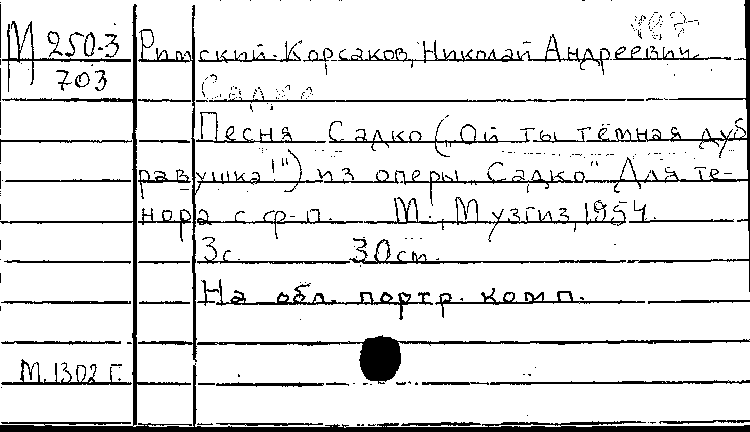 М 250-3
703
Римский-Корсаков, Николай Андреевич.
Садко
Песня Садко („Ой ты тёмная дуб
равушка!") из оперы „Садко" Для те-
нора с ф-п. М., Музгиз, 1954.
3с. 30см.
На обл. портр. комп.
М. 1302 г.